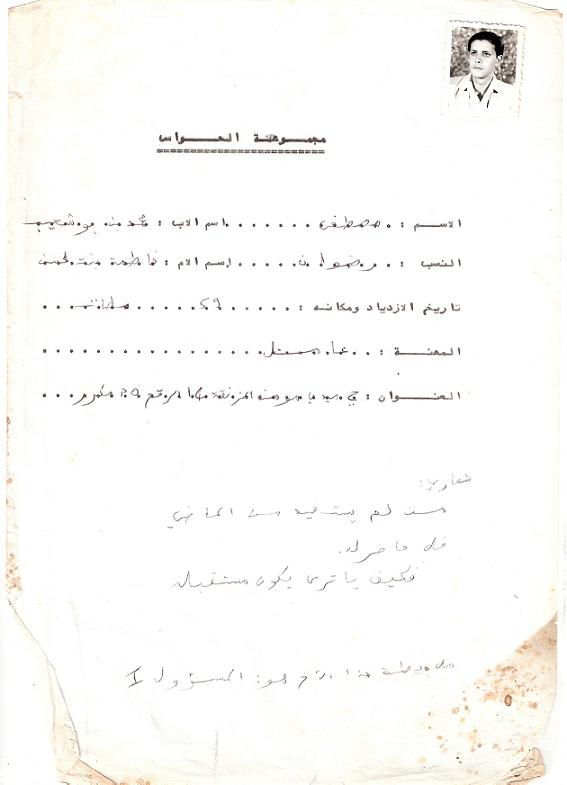 مجموعة الحواس
الاسم : . مصطفى . . . . . . . اسم الاب : محمد بن بوشعيب
النسب : . . رضوان . . . . . اسم الام : فاطمة بنت لحسن
تاريخ الازدياد ومكانه : . . . . . 59 . . . . .
المهنة : . . عامل . . . . . . . . . . . . . . . . .
العنوان : . . . الرقم 35 . . .
شعاري:
من لم يستفيد من الماضي
فلا حاضر له.
فكيف يا ترى يكون مستقبله
ملاحظة هذا الأخ هو: المسؤول I